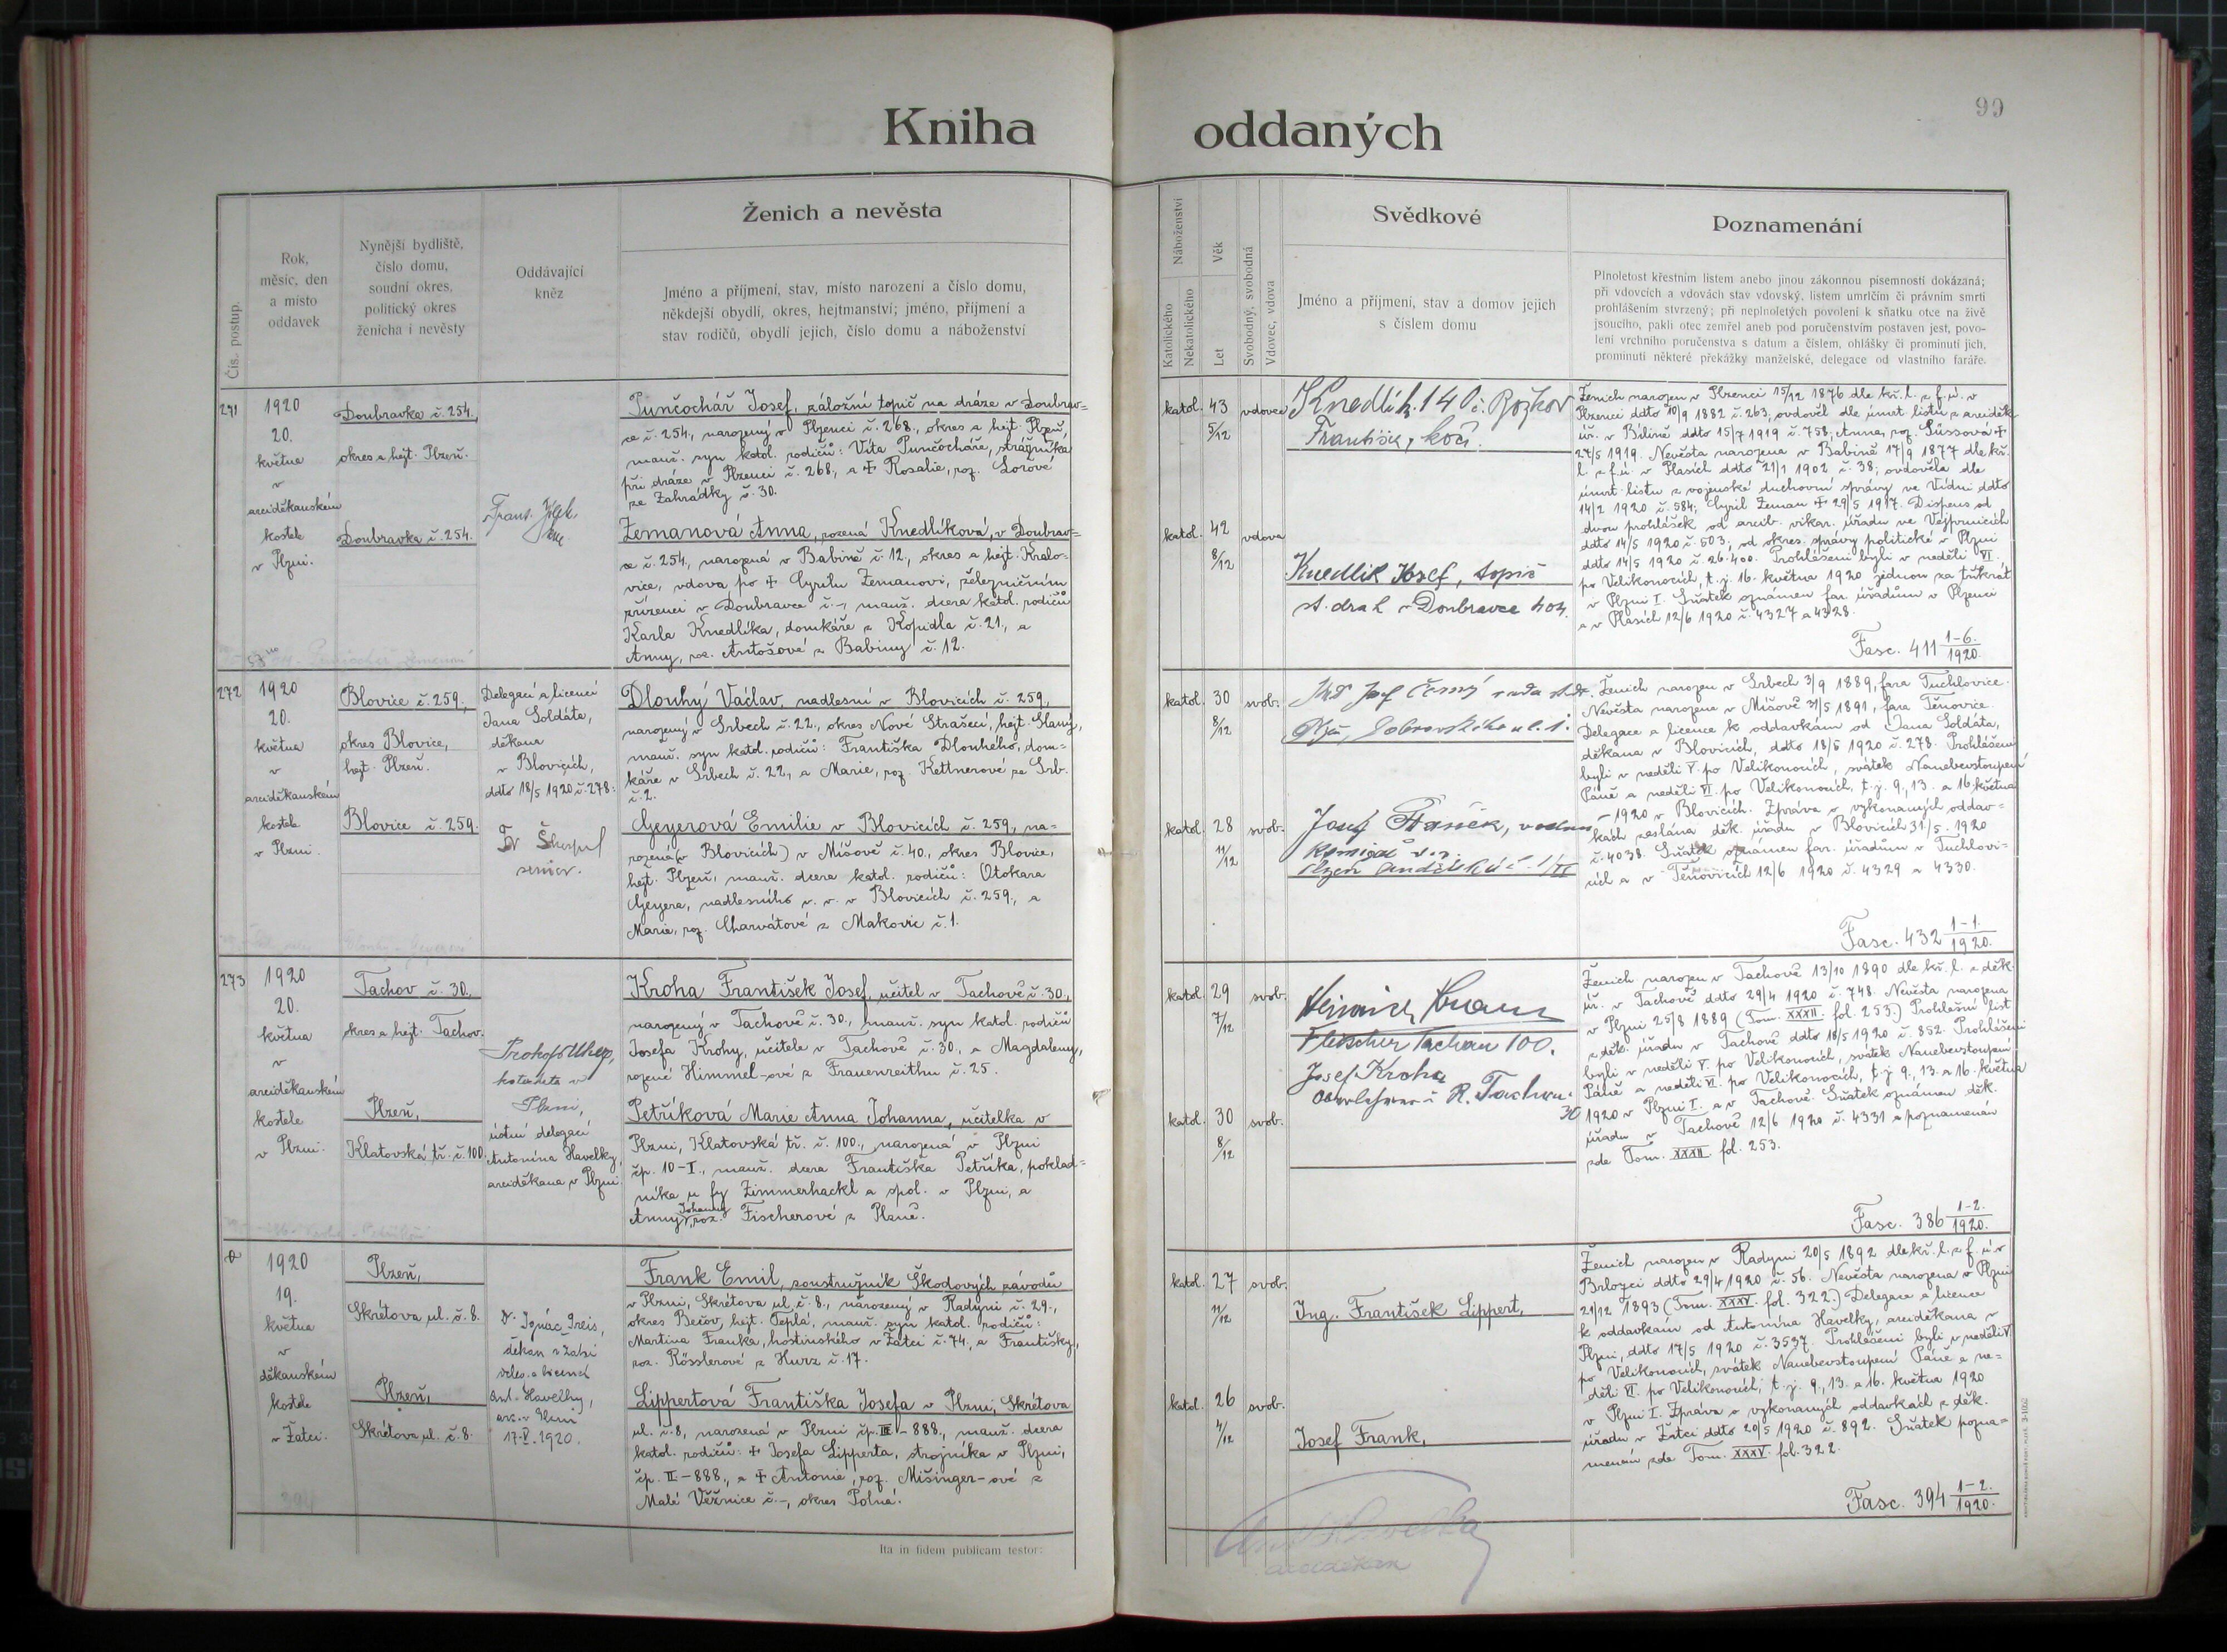 99
Kniha oddaných
Čís. postup.
Rok,
měsíc, den
a místo
oddavek
Nynější bydliště,
číslo domu,
soudní okres,
politický okres
ženicha i nevěsty
Oddávající
kněz
Ženich a nevěsta
Jméno a příjmení, stav, místo narození a číslo domu,
někdejší obydlí, okres, hejtmanství; jméno, příjmení a
stav rodičů, obydlí jejich, číslo domu a náboženství
Náboženství
Katolického
Nekatolického
Věk
Let
Svobodný, svobodná
Vdovec, vdova
Svědkové
Jméno a příjmení, stav a domov jejich
s číslem domu
Poznamenání
Plnoletost křestním listem anebo jinou zákonnou písemností dokázaná;
při vdovcích a vdovách stav vdovský, listem umrlčím či právním smrti
prohlášením stvrzený; při neplnoletých povolení k sňatku otce na živě
jsoucího, pakli otec zemřel aneb pod poručenstvím postaven jest, povo-
lení vrchního poručenstva s datum a číslem, ohlášky či prominutí jich,
prominutí některé překážky manželské, delegace od vlastního faráře.
271
1920
20.
května
v
arciděkanském
kostele
v Plzni.
Doubravka č. 254.,
okres a hejt. Plzeň.
Doubravka č. 254.
Frant.
Punčochář Josef, záložní topič na dráze v Doubrav=
ce č. 254, narozený v Plzenci č. 268., okres a hejt. Plzeň,
manž. syn katol. rodičů: Víta Punčocháře, strážníka
při dráze v Plzenci č. 268., a ✝ Rosalie, roz. Šorové
ze Zahrádky č. 30.
Zemanová Anna, rozená Knedlíková, v Doubrav=
ce č. 254, narozená v Babině č. 12, okres a hejt. Kralo-
vice, vdova po ✝ Cyrilu Zemanovi, železničním
zřízenci v Doubravce č. -, manž. dcera katol. rodičů
Karla Knedlíka, domkáře z Kopidla č. 21., a
Anny, roz. Antošové z Babiny č. 12.
katol. 43 5/12 vdovec
katol. 42 8/12 vdova
Knedlík. 140 č.
František, kočí.
Knedlik Josef, topič
st. drah v Doubravce
Ženich narozen v Plzenci 15/12 1876 dle kř. l. z f. ú. v
Plzenci ddto 10/9 1882 č. 263; ovdověl dle úmrt. listu z arciděk.
úř. v Bílině ddto 15/7 1919 č. 758; Anna, roz. Süssová ✝
27/5 1919. Nevěsta narozena v Babině 17/9 1877 dle kř.
l. z f. ú. v Plasích ddto 21/1 1902 č. 38; ovdověla dle
úmrt. listu z vojenské duchovní správy ve Vídni ddto
14/2 1920 č. 584; Cyril Zeman ✝ 29/5 1917. Dispens od
dvou prohlášek od arcib. vikar. úřadu ve Vejprnicích
ddto 14/5 1920 č. 503; od okres. správy politické v Plzni
ddto 14/5 1920 č. 26.400. Prohlášeni byli v neděli VI.
po Velikonocích, t. j. 16. května 1920 jednou za třikrát
v Plzni I. Sňatek oznámen far. úřadům v Plzenci
a v Plasích 12/6 1920 č. 4327 a 4328.
Fasc. 411 1-6./1920.
272
1920
20.
května
v
arciděkanském
kostele
v Plzni.
Blovice č. 259.,
okres Blovice,
hejt. Plzeň.
Blovice č. 259.
Delegací a licencí
Jana Soldáta,
děkana
v Blovicích,
ddto 18/5 1920 č. 278:
senior.
Dlouhý Václav, nadlesní v Blovicích č. 259,
narozený v Srbech č. 22., okres Nové Strašecí, hejt. Slaný,
manž. syn katol. rodičů: Františka Dlouhého, dom=
káře v Srbech č. 22., a Marie, roz. Kettnerové ze Srb.
č. 2.
Geyerová Emilie v Blovicích č. 259, na-
rozená (v Blovicích) v Míšově č. 40., okres Blovice,
hejt. Plzeň, manž. dcera katol. rodičů: Otokara
Geyera, nadlesního v. v. v Blovicích č. 259., a
Marie, roz. Charvátové z Makovic č. 1.
katol. 30 8/12 svob.
katol. 28 11/12 svob.
Josef Černý
Josef
Ženich narozen v Srbech 3/9 1889, fara Tuchlovice.
Nevěsta narozena v Míšově 31/5 1891, fara Těňovice.
Delegace a licence k oddavkám od Jana Soldáta,
děkana v Blovicích, ddto 18/5 1920 č. 278. Prohlášeni
byli v neděli V. po Velikonocích, svátek Nanebevstoupení
Páně a neděli VI. po Velikonocích, t. j. 9., 13. a 16. května
1920 v Blovicích. Zpráva o vykonaných oddav=
kách zaslána děk. úřadu v Blovicích 31/5 1920
č. 4038. Sňatek oznámen far. úřadům v Tuchlovi-
cích a v Těňovicích 12/6 1920 č. 4329 a 4330.
Fasc. 432 1-1./1920.
273
1920
20.
května
v
arciděkanském
kostele
v Plzni.
Tachov č. 30.,
okres a hejt. Tachov.
Plzeň,
Klatovská tř. č. 100.
katecheta v
Plzni,
ústní delegací
Antonína Havelky,
arciděkana v Plzni.
Kroha František Josef, učitel v Tachově č. 30.,
narozený v Tachově č. 30., manž. syn katol. rodičů
Josefa Krohy, učitele v Tachově č. 30., a Magdaleny,
rozené Himmel-ové z Frauenreithu č. 25.
Petříková Marie Anna Johanna, učitelka v
Plzni, Klatovská tř. č. 100., narozená v Plzni
čp. 10-I., manž. dcera Františka Petříka, poklad=
níka u fy Zimmerhackl a spol. v Plzni, a
Anny Johanny, roz. Fischerové z Plané.
katol. 29 7/12 svob.
katol. 30 8/12 svob.
Heinrich
Fleischer Tachau 100.
Josef Kroha
Oberlehrer i. R. Tachau
30
Ženich narozen v Tachově 13/10 1890 dle kř. l. z děk.
úř. v Tachově ddto 29/4 1920 č. 748. Nevěsta narozena
v Plzni 25/8 1889 (Tom. XXXII. fol. 253.) Prohlášní list
z děk. úřadu v Tachově ddto 18/5 1920 č. 852. Prohlášeni
byli v neděli V. po Velikonocích, svátek Nanebevstoupení
Páně a neděli VI. po Velikonocích, t. j. 9., 13. a 16. května
1920 v Plzni I. a v Tachově. Sňatek oznámen děk.
úřadu v Tachově 12/6 1920 č. 4331 a poznamenán
zde Tom. XXXII. fol. 253.
Fasc. 386 1-2./1920.
1920
19.
května
v
děkanském
kostele
v Žatci.
Plzeň,
Skrétova ul. č. 8.
Plzeň,
Skrétova ul. č. 8.
Dr. Ignác Preis,
děkan v Žatci
deleg. a licencí
Ant. Havelky,
ark. v Plzni
17.V.1920.
Frank Emil, soustružník Škodových závodů
v Plzni, Skrétova ul. č. 8., narozený v Radyni č. 29.,
okres Bečov, hejt. Teplá, manž. syn katol. rodičů:
Martina Franka, hostinského v Žatci č. 74., a Františky,
roz. Rösslerové z Hurz č. 17.
Lippertová Františka Josefa v Plzni, Skrétova
ul. č. 8, narozená v Plzni čp. III-888., manž. dcera
katol. rodičů: ✝ Josefa Lipperta, strojníka v Plzni,
čp. II-888., a ✝ Antonie, roz. Mišinger-ové z
Malé Věžnice č. -, okres Polná.
katol. 27 11/12 svob.
katol. 26 4/12 svob.
Ing. František Lippert,
Josef Frank,
Ženich narozen v Radyni 20/5 1892 dle kř. l. z f. ú. v
ddto 29/4 1920 č. 56. Nevěsta narozena v Plzni
21/12 1893 (Tom. XXXV. fol. 322.) Delegace a licence
k oddavkám od Antonína Havelky, arciděkana v
Plzni, ddto 17/5 1920 č. 3537. Prohlášeni byli v neděli V.
po Velikonocích, svátek Nanebevstoupení Páně a ne=
děli VI. po Velikonocích, t. j. 9., 13. a 16. května 1920
v Plzni I. Zpráva o vykonaných oddavkách z děk.
úřadu v Žatci ddto 20/5 1920 č. 892. Sňatek pozna=
menán zde Tom. XXXV. fol. 322.
Fasc. 394 1-2./1920.
Ita in fidem publicam testor:
Ant. Havelka
arciděkan